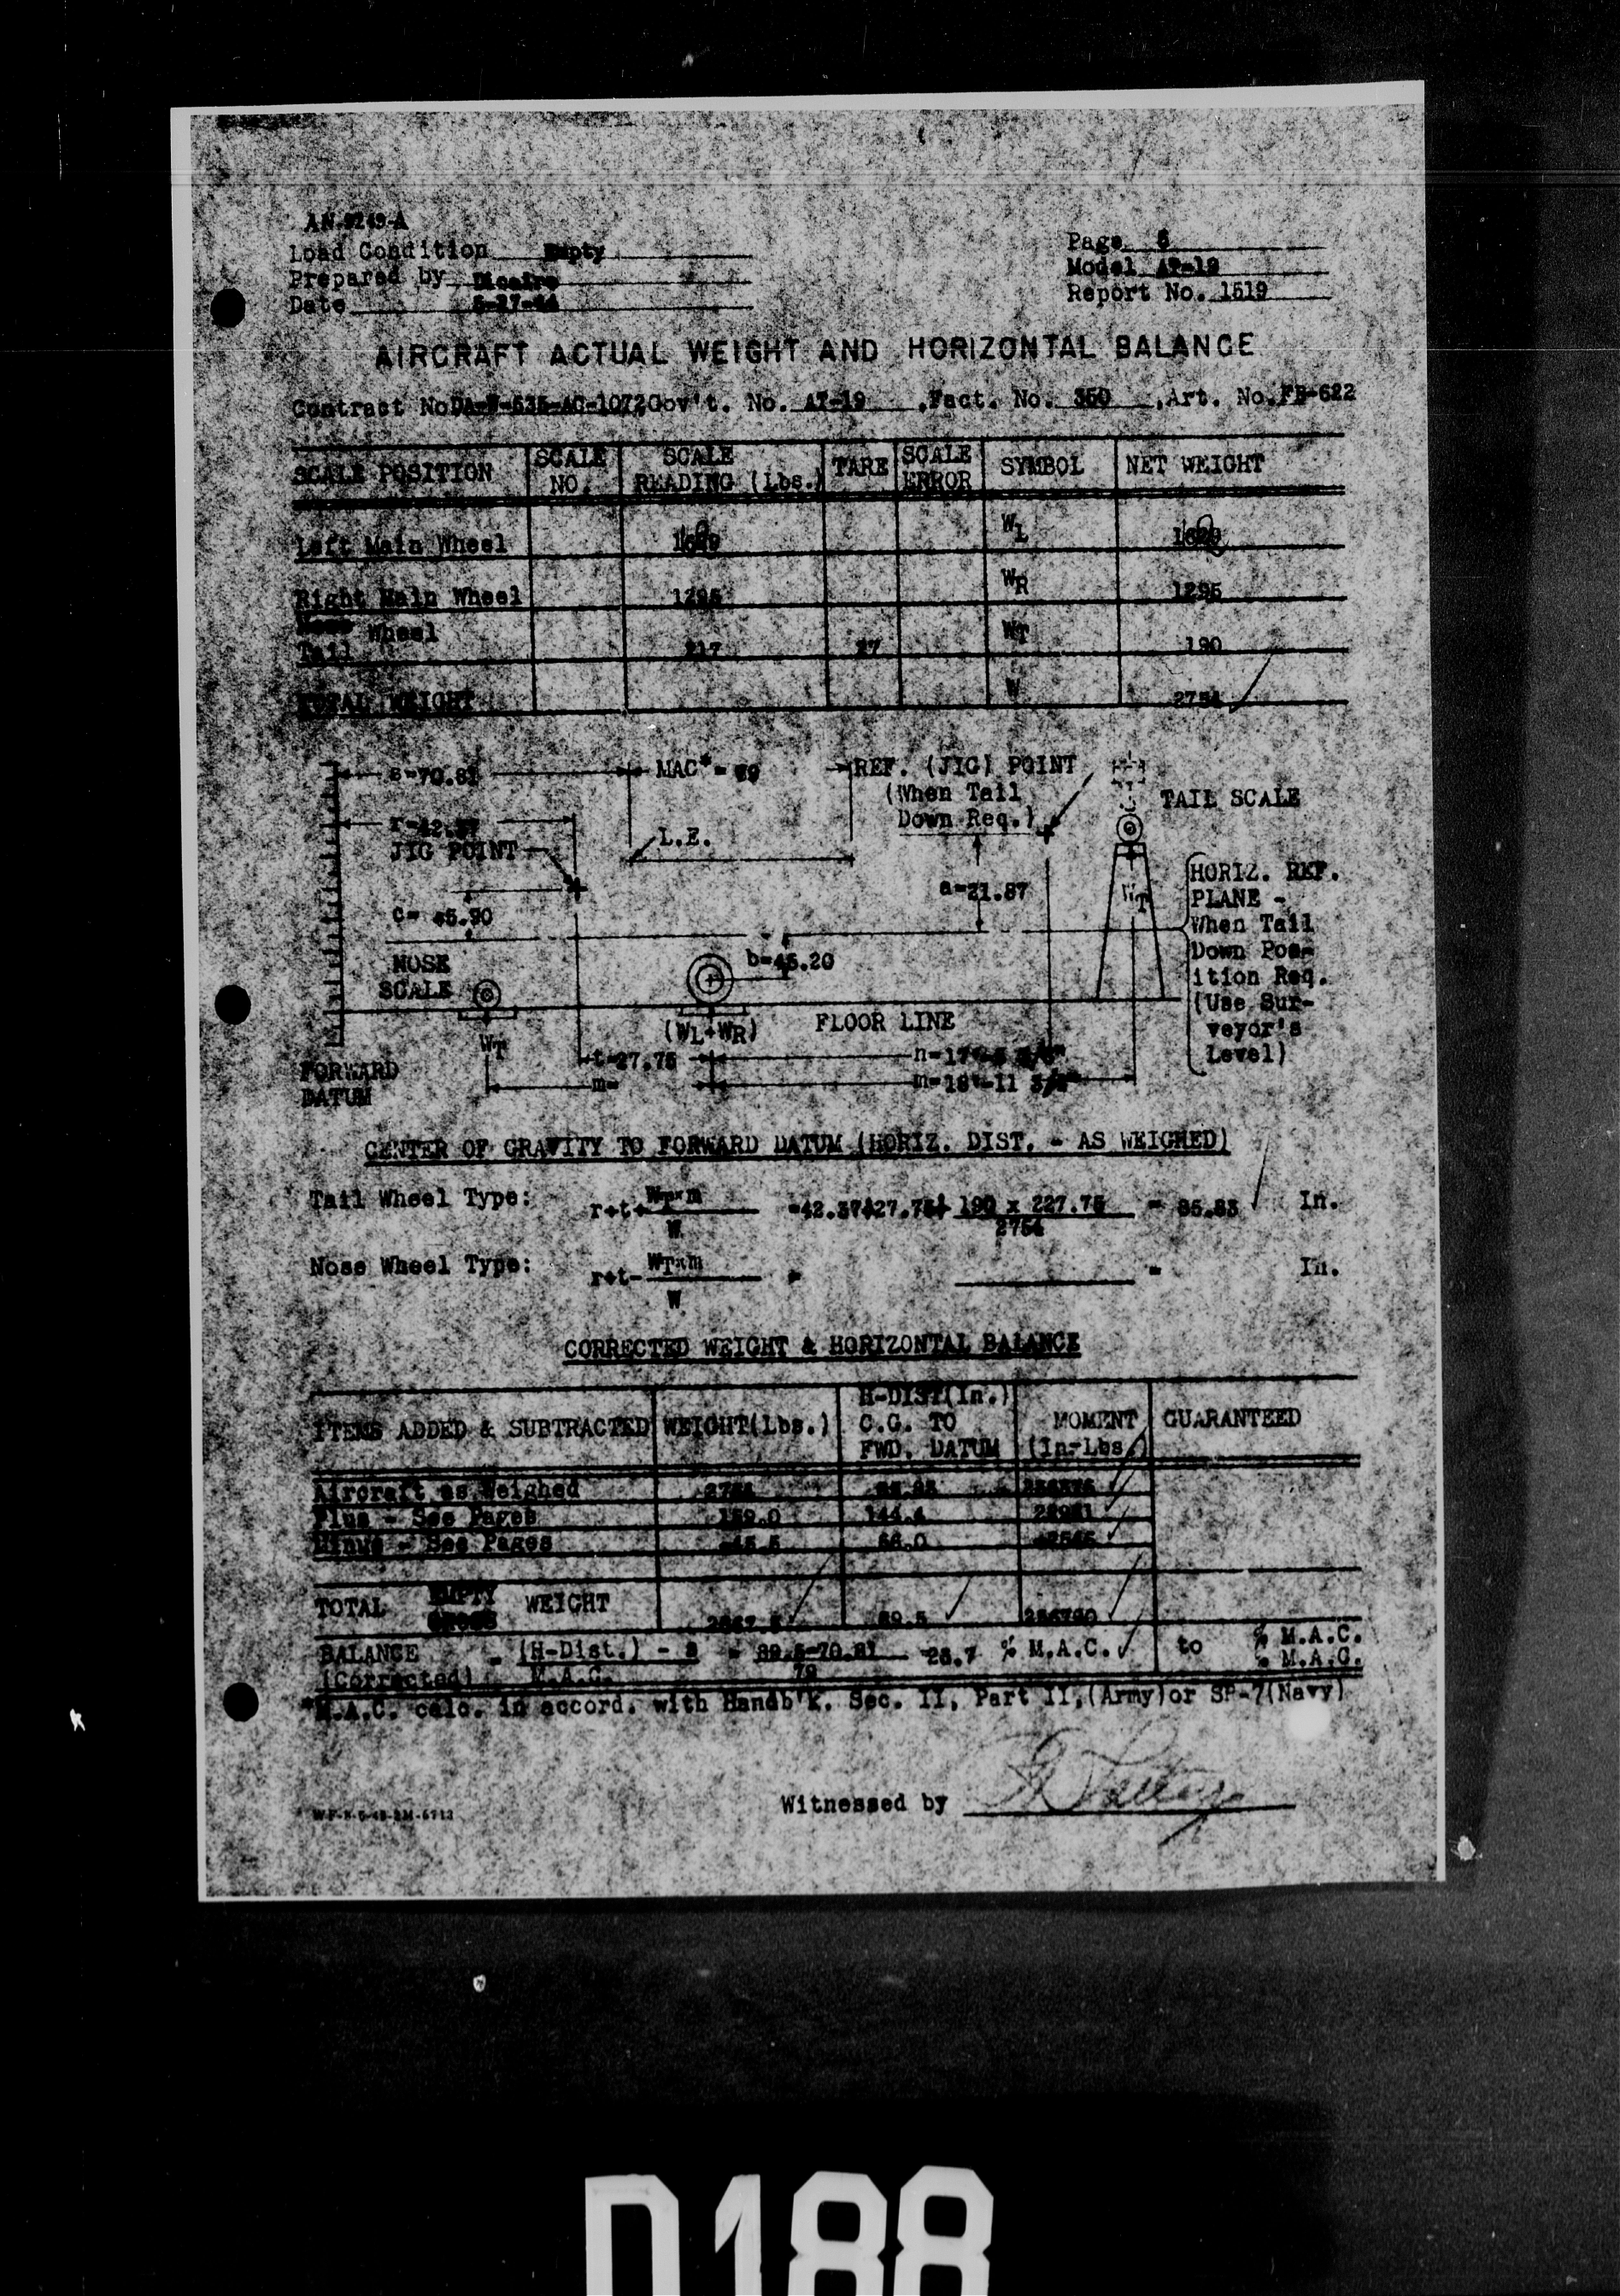 AN-9249-A
Load Condition Empty
Prepared by
Date 5-27-44
Page 5
Model AT-19
Report No. 1519
AIRCRAFT ACTUAL WEIGHT AND HORIZONTAL BALANCE
Contract No DA-W-535-AC-1072 Gov't. No. AT-19 , Fact. No. 350 , Art. No. FB-622
SCALE POSITION SCALE NO. SCALE READING (Lbs.) TARE SCALE ERROR SYMBOL NET WEIGHT
Left Main Wheel WL
Right Main Wheel 1295 WR 1295
Nose Wheel
Tail 217 27 WT 190
TOTAL WEIGHT W 2754
s=70.81 MAC*= 79 REF. (JIG) POINT
(When Tail
Down Req.)
TAIL SCALE
r=42.37
JIG POINT
L.E.
a=21.87
WT
HORIZ. REF.
PLANE -
When Tail
Down Pos-
ition Req.
(Use Sur-
veyor's
Level)
c= 45.90
NOSE
SCALE
b=45.20
(WL+WR) FLOOR LINE
WT
t=27.75
m=
FORWARD
DATUM
CENTER OF GRAVITY TO FORWARD DATUM (HORIZ. DIST. - AS WEIGHED)
Tail Wheel Type: r+t+ WT×m / W =42.37+27.75+ 190 x 227.75 / 2754 = 85.83 In.
Nose Wheel Type: r+t- WT×m / W = = In.
CORRECTED WEIGHT & HORIZONTAL BALANCE
ITEMS ADDED & SUBTRACTED WEIGHT(Lbs.) H-DIST(In.) C.G. TO FWD. DATUM MOMENT (In-Lbs.) GUARANTEED
Aircraft as Weighed 2754 85.83
Plus - See Pages 159.0 144.4
Minus - See Pages -45.5 56.0
TOTAL EMPTY GROSS WEIGHT 2867.5 89.5 256790
BALANCE (Corrected) = (H-Dist.) - s / M.A.C. = 89.5-70.81 / 79 =23.7 % M.A.C. to % M.A.C. % M.A.C.
*M.A.C. calc. in accord. with Handb'k. Sec. II, Part II,(Army)or SR-7(Navy)
Witnessed by
D188